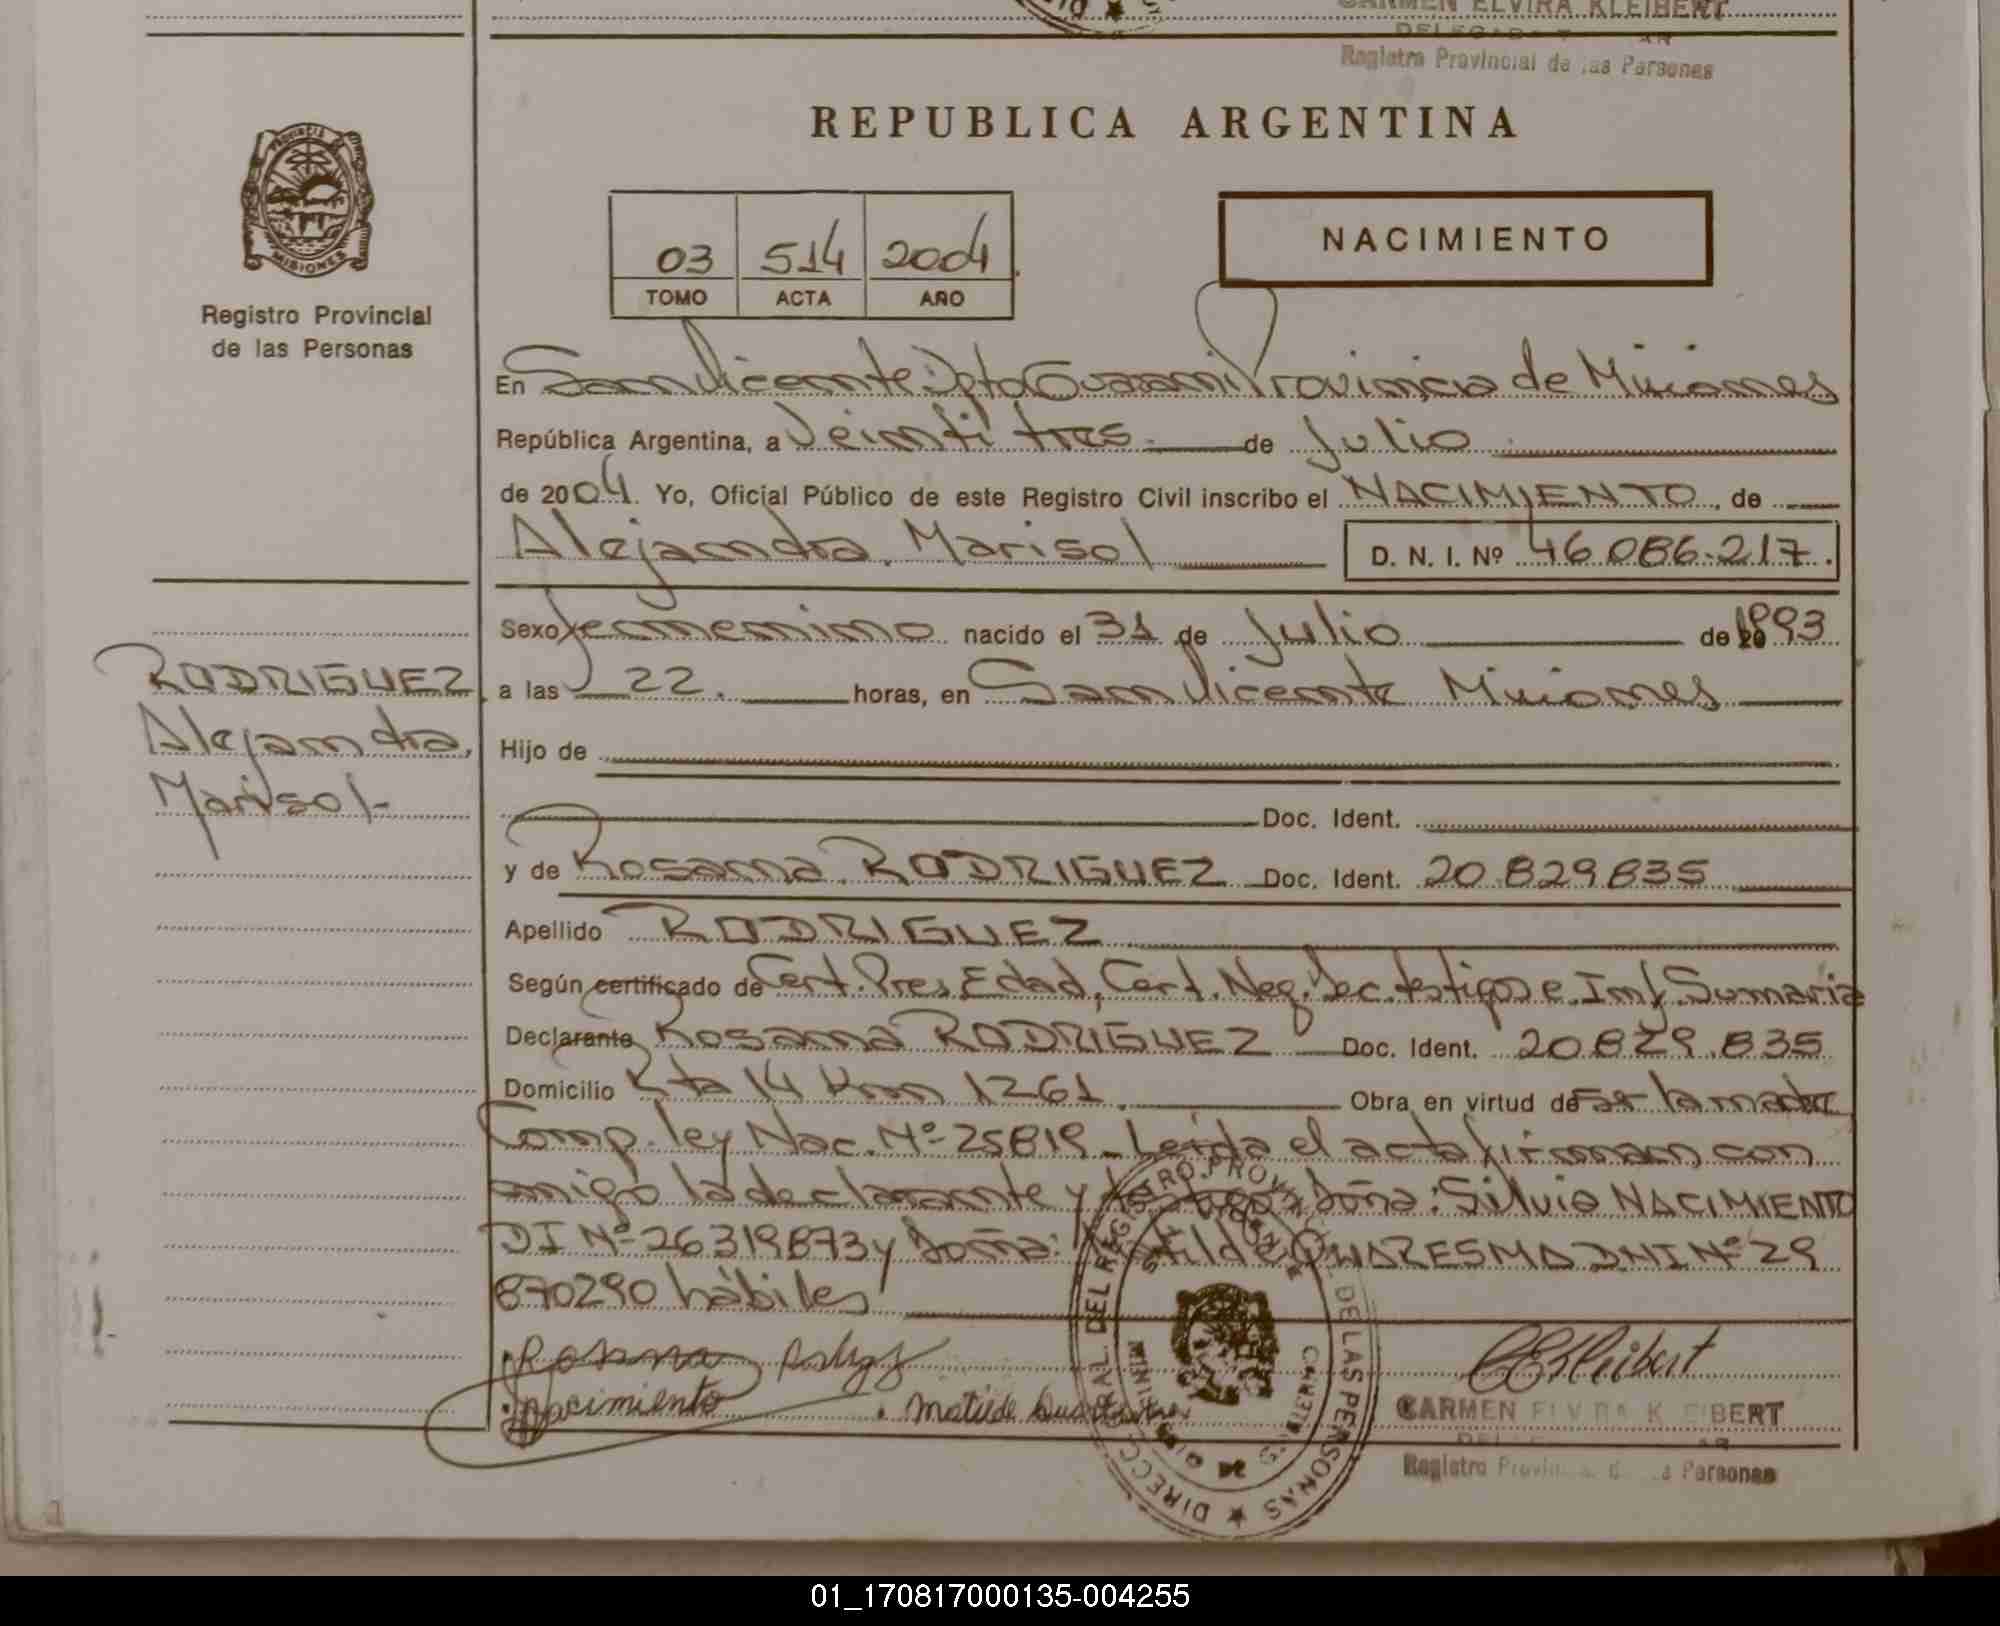 CARMEN ELVIRA KLEIBERT
Registro Provincial de las Personas
REPUBLICA ARGENTINA
PROVINCIA DE
MISIONES
Registro Provincial
de las Personas
03 514 2004
TOMO ACTA AÑO
NACIMIENTO
En San Vicente Dpto Guarani Provincia de Misiones
República Argentina, a Veintitres de Julio
de 2004. Yo, Oficial Público de este Registro Civil inscribo el NACIMIENTO, de
Alejandra Marisol D. N. I. Nº 46.086.217.
Sexo femenino nacido el 31 de Julio de 1993
RODRIGUEZ
Alejandra,
Marisol-
a las 22. horas, en San Vicente Misiones
Hijo de
Doc. Ident.
y de Rosana RODRIGUEZ Doc. Ident. 20.829.835
Apellido RODRIGUEZ
Según certificado de Cert. Pres. Edad, Cert. Neg. Dec. testigos e Inf. Sumaria
Declarante Rosana RODRIGUEZ Doc. Ident. 20.829.835
Domicilio Rta 14 Km 1261. Obra en virtud de ser la madre
Comp. ley Nac. Nº 25819 - Leída el acta firman con
migo la declarante y testigos doña: Silvia NACIMIENTO
DI Nº 26319873 y doña: Matilde QUARESMA DNI Nº 29
870290 hábiles
Rosana Rodrgz
Nacimiento Matilde
CEKleibert
CARMEN ELVIRA KLEIBERT
Registro Provincial de las Personas
DIRECC. GRAL. DEL REGISTRO PROVINCIAL DE LAS PERSONAS
01_170817000135-004255